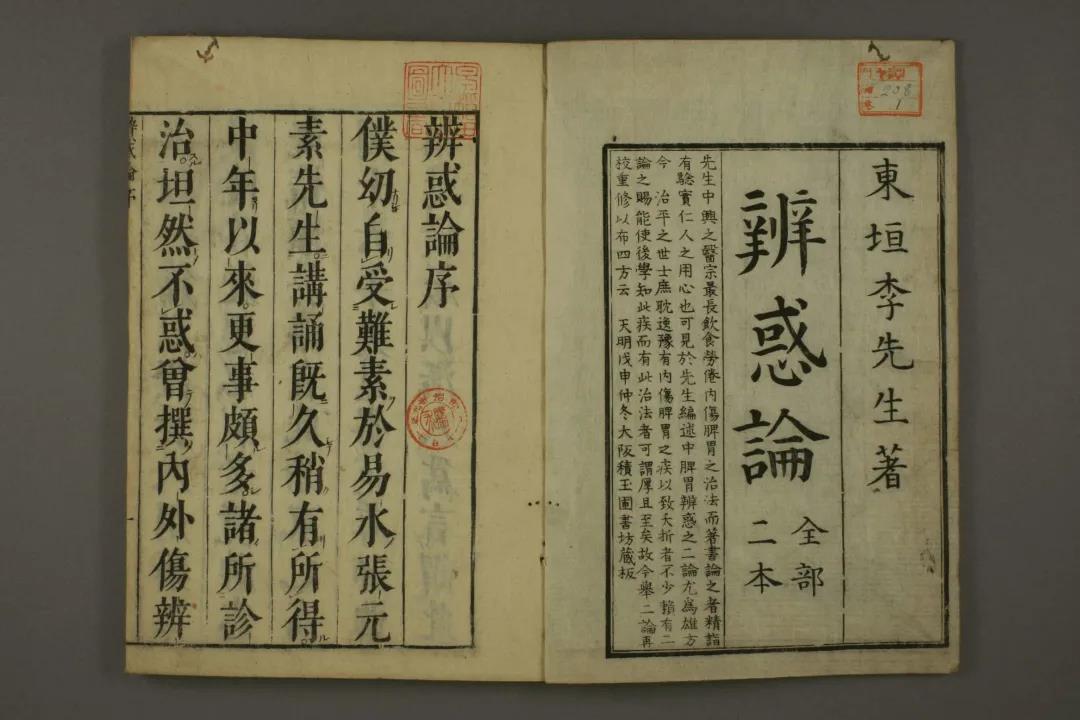 東垣李先生著
辨惑論
全部
二本
先生中興之醫宗最長飲食勞倦內傷脾胃之治法而著書論之者精詣
有驗實仁人之用心也可見於先生編述中脾胃辨惑之二論尤為雄方
今　治平之世士庶耽逸豫有內傷脾胃之疾以致夭折者不少賴有二
論之賜能使後學知此疾而有此治法者可謂厚且至矣故今舉二論再
校重修以布四方云　天明戊申仲冬大阪積玉圃書坊藏板
208
1
辨惑論序
僕幼自受難素於易水張元
素先生講誦既久稍有所得
中年以來更事頗多諸所診
治坦然不惑曾撰內外傷辨
辨惑論序
一